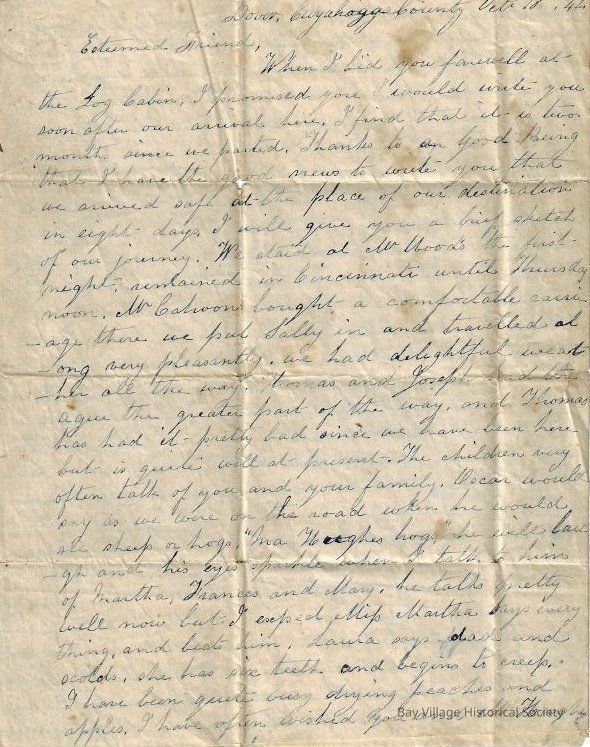 Dover, Cuyahogga County Oct. 18, 44
Esteemed Friend,
When I bid you farewell at
the Log Cabin, I promised you I would write you
soon after our arrival here. I find that it is two
months since we parted. Thanks to an Good Being
that I have the good news to write you that
we arrived safe at the place of our destination
in eight days, I will give you a brief sketch
of our journey. We staid at Mr Woods the first
night, remained in Cincinnati until Thursday
noon. Mr Cahoon bought a comfortable carri
-age there we put Sally in and travelled al
-ong very pleasantly. we had delightful weat
-her all the way. Thomas and Joseph had the
ague the greater part of the way, and Thomas
has had it pretty bad since we have been here
but is quite well at present. The children very
often talk of you and your family. Oscar would
say as we were on the road when he would
see sheep or hogs, "Ma Hughes hogs," he will lau
-gh and his eyes sparkle when I talk to him
of Martha, Frances and Mary. he talks pretty
well now but I expect Miss Martha says every
thing, and beats him. Laura says dad and
scolds. she has six teeth and begins to creep.
I have been quite busy drying peaches and
apples. I have often wished you
Bay Village Historical Society